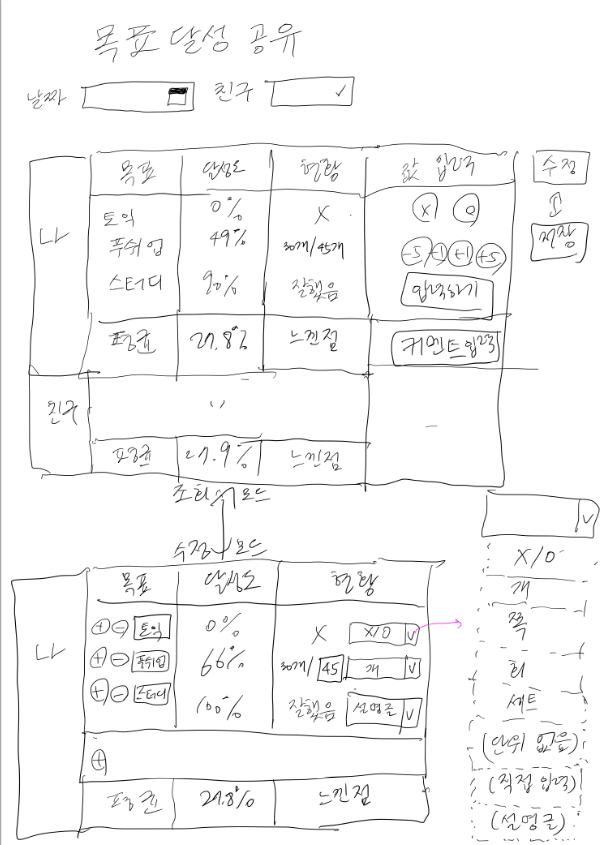 목표 달성 공유
날짜 친구
목표 달성도 현황 값 입력 수정
나 토익 0% X X O
푸쉬업 49% 30개/45개 -5 -1 +1 +5 저장
스터디 90% 잘했음 입력하기
평균 27.8% 느낀점 커멘트입력
친구 〃 -
평균 27.9% 느낀점
조회 모드
수정 모드
목표 달성도 현황
나 + - 토익 0% X X/O V
+ - 푸쉬업 66% 30개/ 45 개 V
+ - 스터디 100% 잘했음 설명글 V
+
평균 27.8% 느낀점
V
X/O
개
쪽
회
세트
(단위 없음)
(직접 입력)
(설명글)